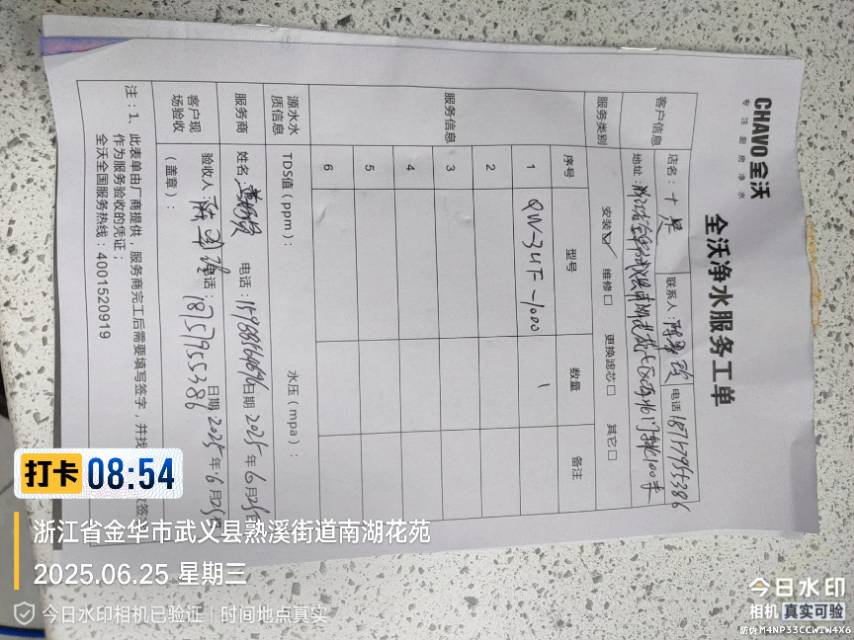 CHAVO全沃
专注厨房净水
全沃净水服务工单
客户信息 店名：十足 联系人： 电话 18757955386
地址：
服务类别 安装☑ 维修□ 更换滤芯□ 其它□
服务信息 序号 型号 数量 备注
1 QW-3UF-1000 1
2
3
4
5
6
源水水质信息 TDS值（ppm）： 水压（mpa）：
服务商 姓名： 电话： 日期 2025年6月25日
客户现场验收 验收人： 电话：18757955386 日期 2025年6月25日
（盖章）：
注：1、此表单由厂商提供，服务商完工后需要填写签字，并找
作为服务验收的凭证；
全沃全国服务热线：4001520919
打卡 08:54
浙江省金华市武义县熟溪街道南湖花苑
2025.06.25 星期三
今日水印相机已验证 | 时间地点真实
今日水印
相机 真实可验
防伪 M4NP33CCWIW4X6